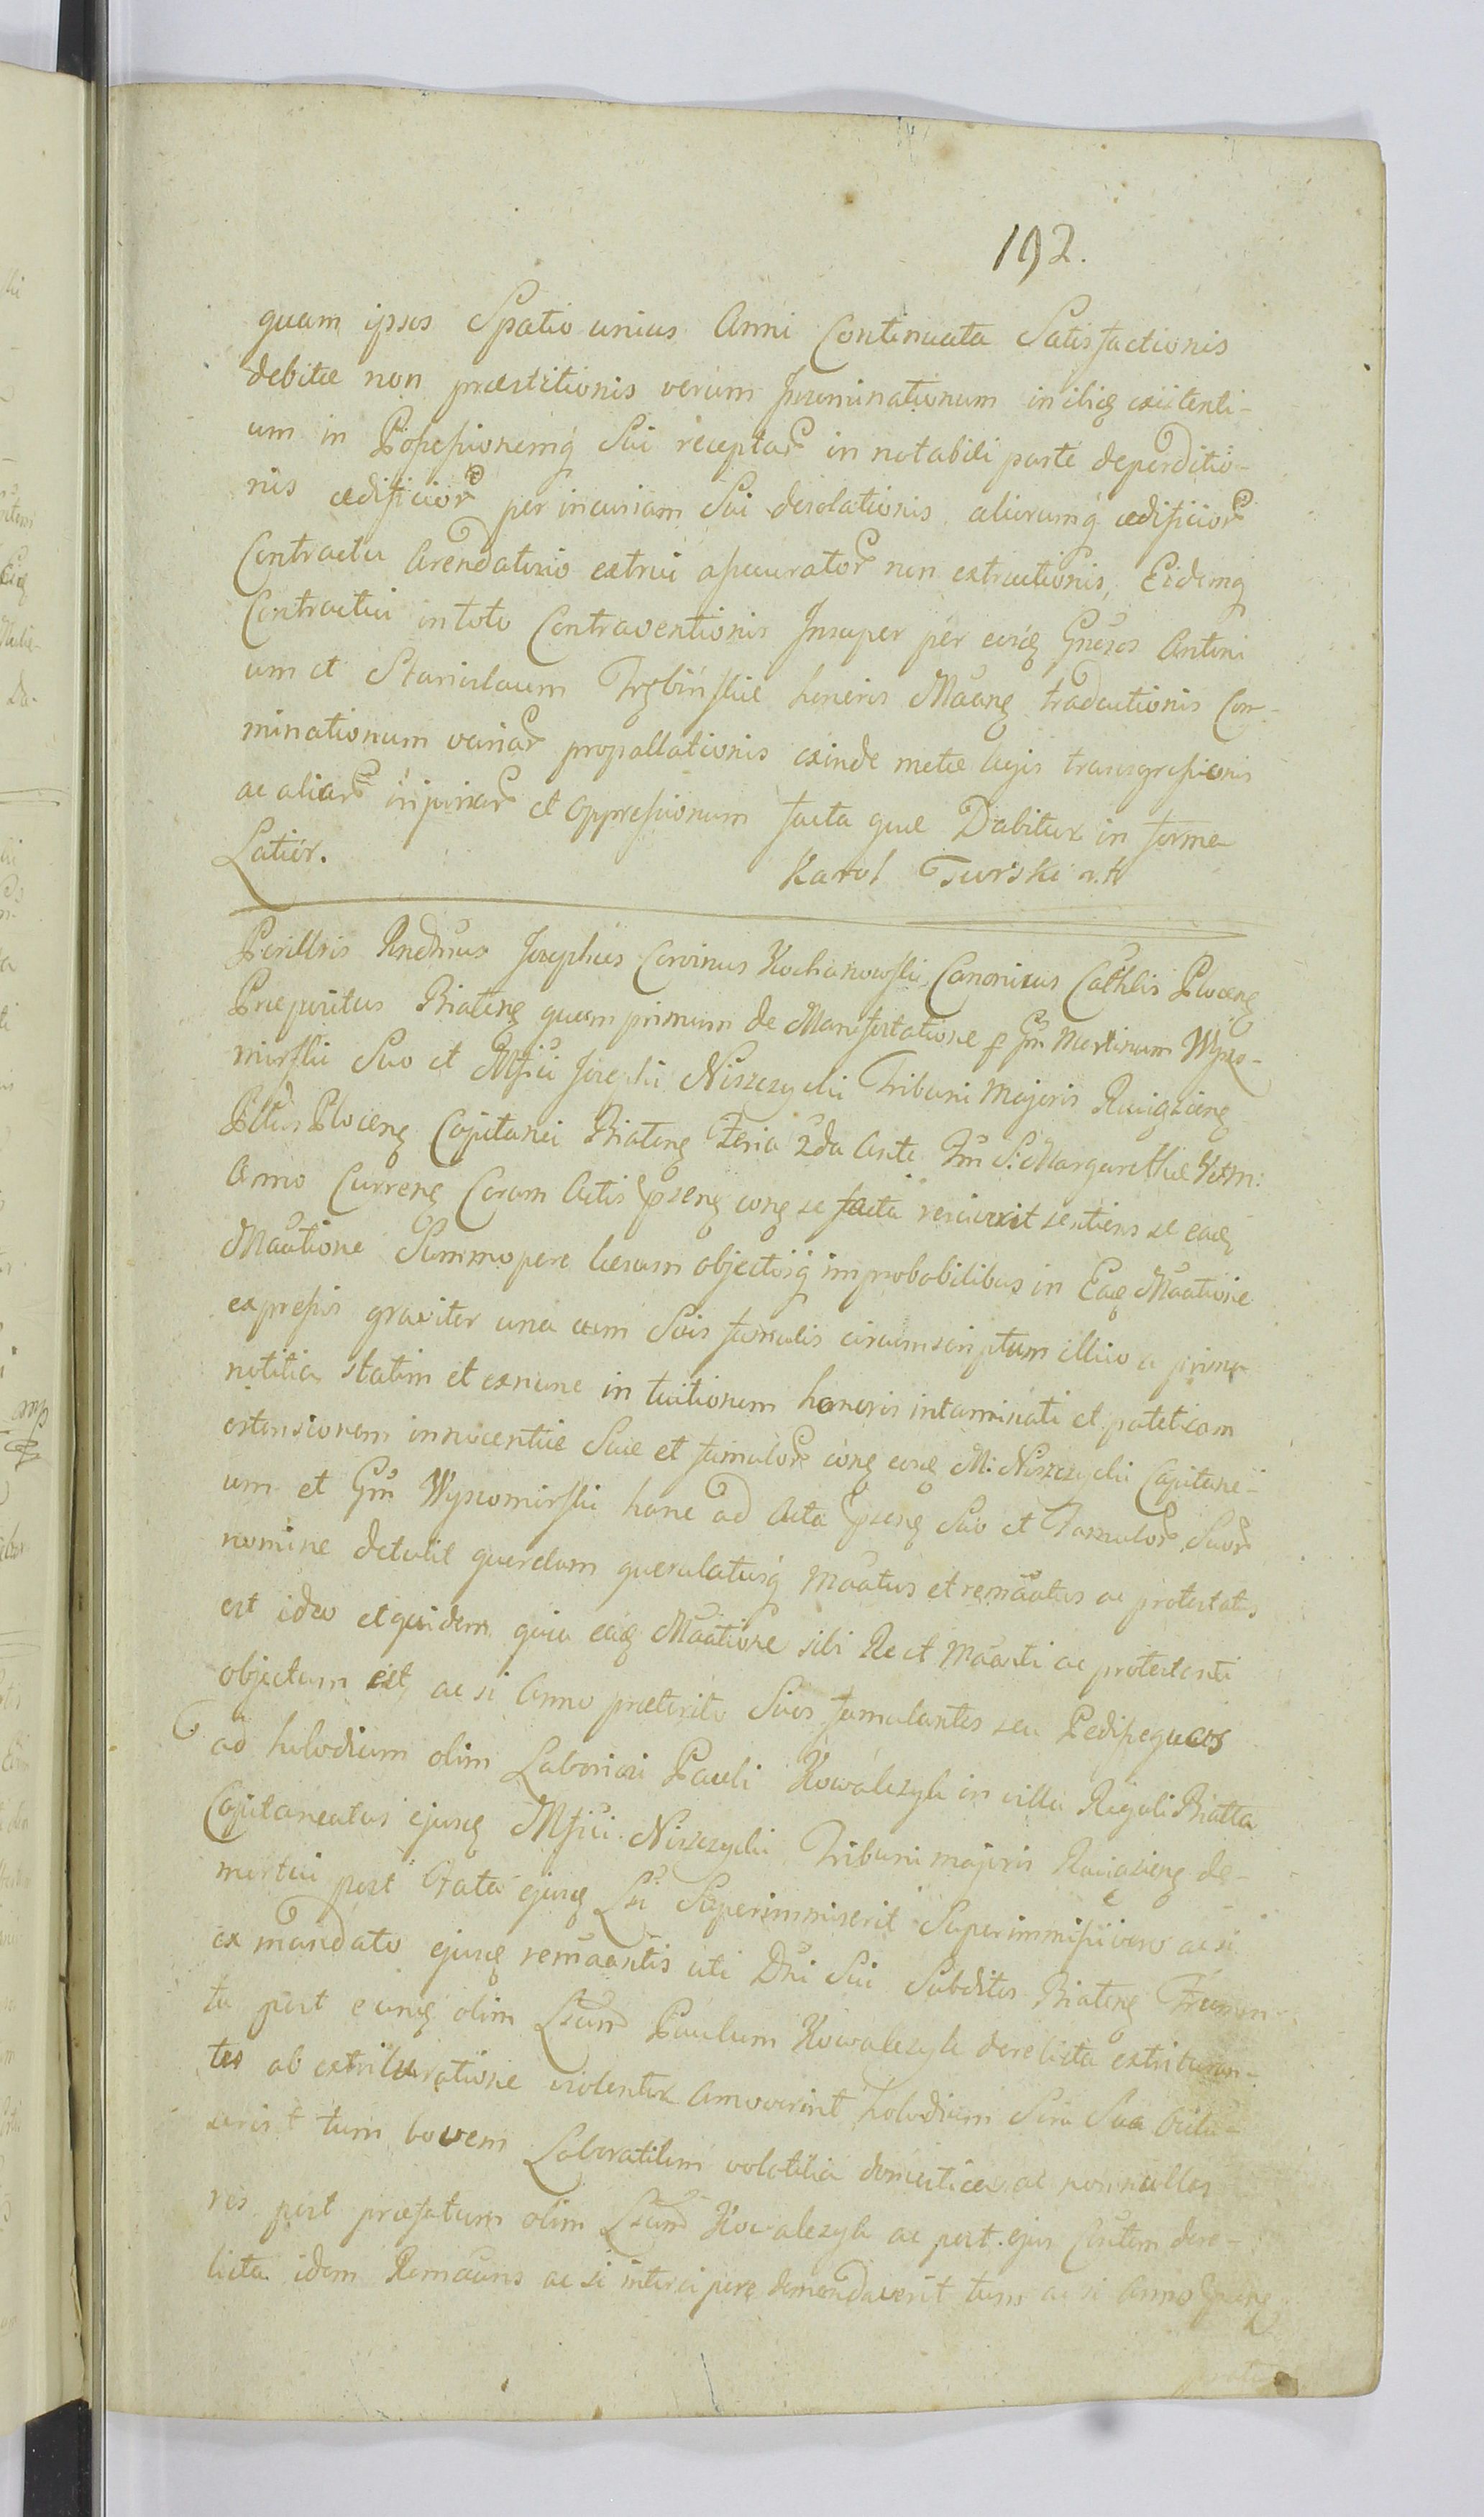 192.
quam ipsos Spatio unius Anni Continuata Satisfactionis
debitæ non præstitionis verum seminationum in iisdem existenti-
um in Possessionemq Sui receptar in notabili parte deperditio-
nis ædificior per incuriam Sui desolationis aliorumq ædificior
Contractu Arendatorio extrui assecurator non extructionis, Eidemq
Contractui in toto Contraventionis Insuper per eosd Gnosos Antoni
um et Stanislaum Trzbinskie honoris Maang traductionis Com-
minationum variar propallationis exinde metæ legis transgressionis
ac aliar injuriar et oppressionum facta quæ Dabitur in forma
Latior.
Karol Turski
Perillris Rndmus Josephus Corvinus Kochanowski Canonicus Cathlis Plocen
Præpositus Biaten quam primum de Manifestatione p Gm Martinum Wyszo-
mirski Suo et Mfici Josephi Niszczycki Tribuni Majoris Raciązien
Pltus Plocen Capitanei Biaten Feria 2da Ante Fm S: Margarethæ
Anno Curren Coram Actis Psen con se facta rescivit sentiens se ead
Maatione Summopere læsum objectisq improbabilibus in Ead Maatione
expressis graviter una cum Suis famulis circumscriptum illico a prima
notitia statim et exnunc in tuitionem honoris intaminati et pateticam
ostensionem innocentiæ Suæ et famulor con eosd M: Niszczycki Capitane-
um et Gm Wyszomirski hanc ad Acta Psen Suo et Famulor Suor
nomine detulit querelam querulatusq Maatus et remaatus ac protestatus
est ideo et quidem quia ead Maatione sibi Re et Maanti ac protestanti
objectum est, ac si Anno præterito Suos famulantes seu Pedissequas
ad holodium olim Laboriosi Pauli Kowalczyk in villa Regali Biała
Capitaneatus ejusd Mfici Niszczycki Tribuni majoris Raciązien de-
mortui post Fata ejusd Lsi Superimmiserit Superimmissi vero ac si
ex mandato ejusd remaantis uti Dni Sui Subditos Biaten Frumen-
ta post eund olim Lsum Paulum Kowalczyk derelicta extrituran-
tes ab extrituratione violenter Amoverint holodium Sera Sua Oclu-
serit tum bovem Laboratilem volatilia domestica ac nonnullas
res post præfatum olim Lsum Kowalczyk ac post ejus Csutem dere-
licta idem Remaans ac si intercipere demandaverit tum ac si Anno Psen